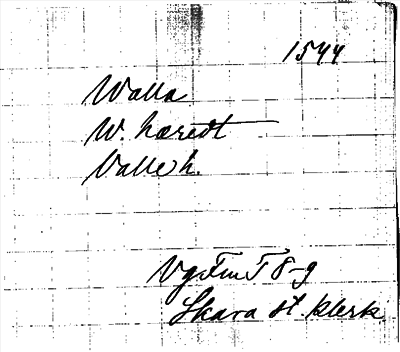 1544
Walla
W. hæredt
Valle h.
VgFmT 8-9
Skara st. klerk.